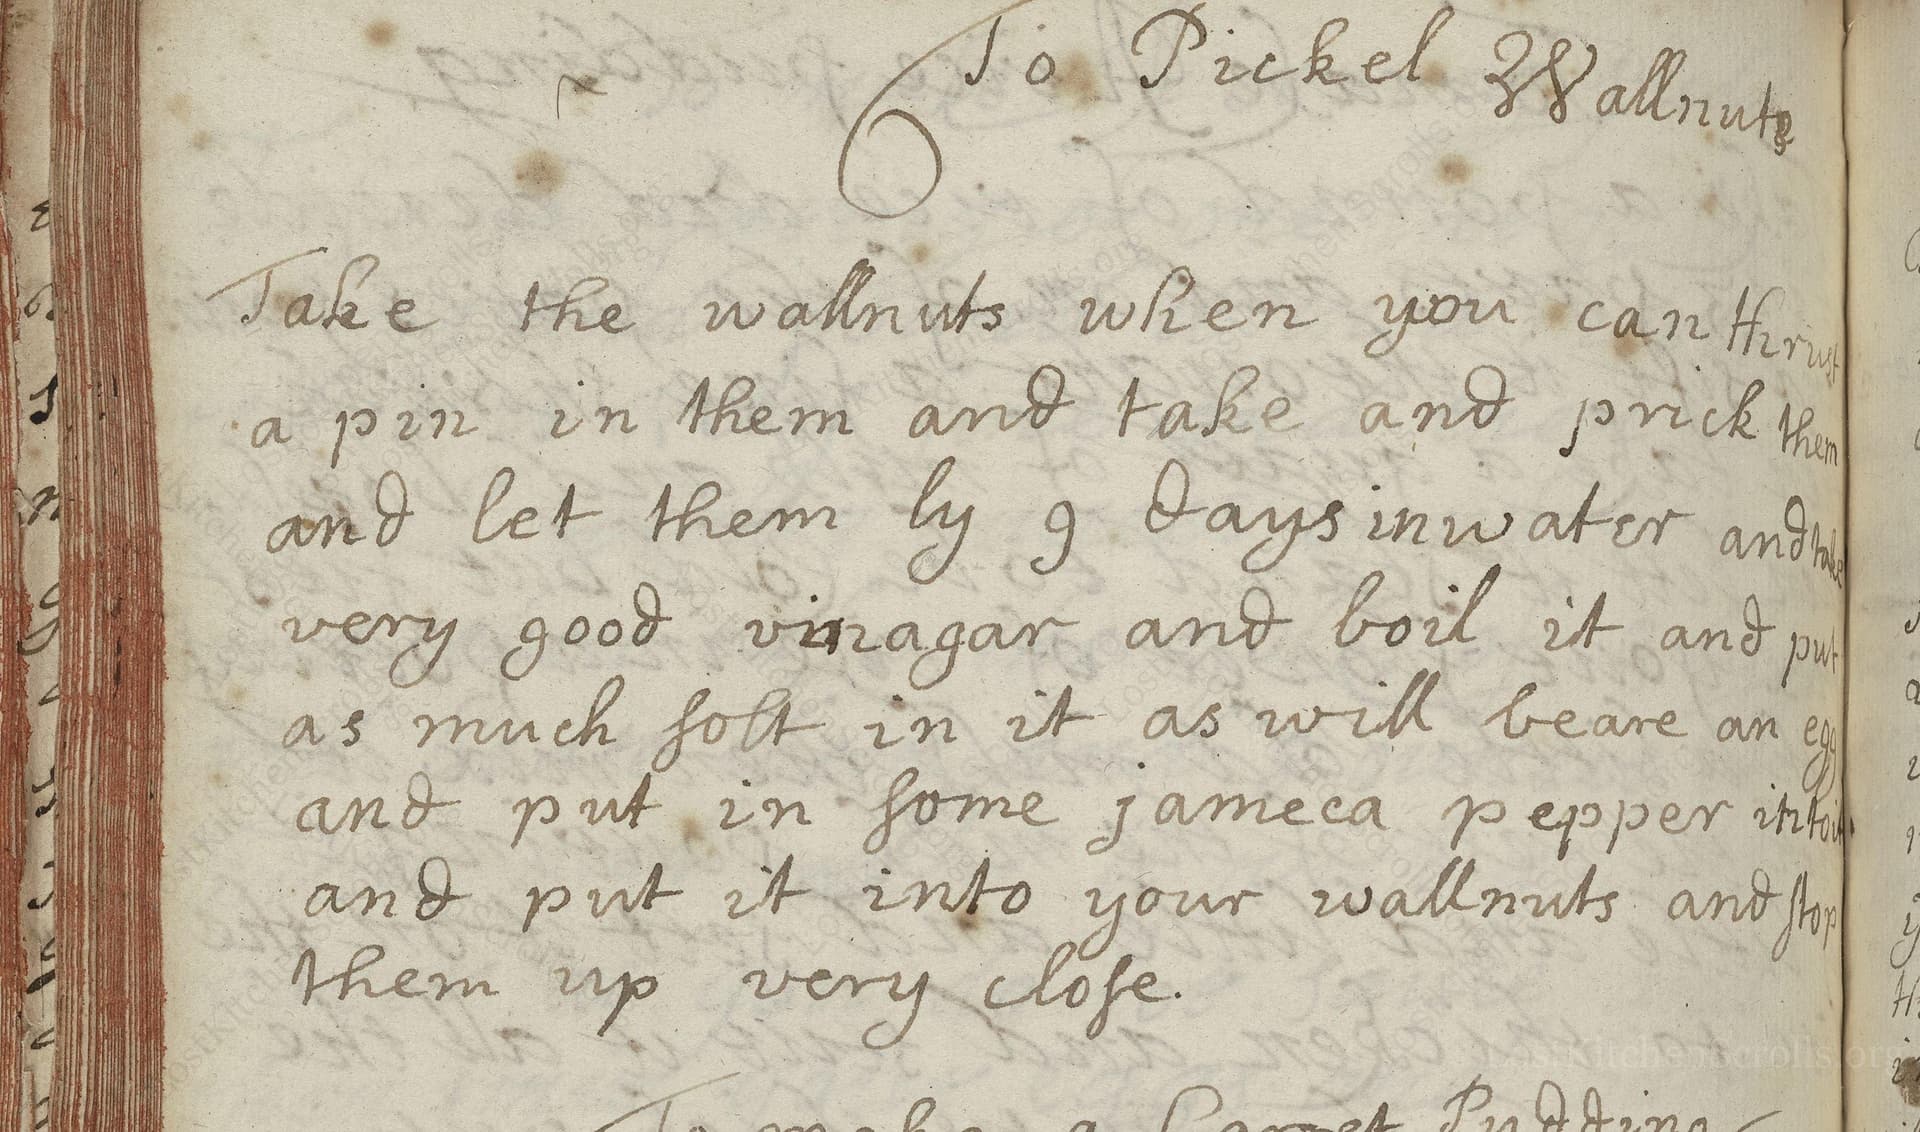 To Pickel Wallnuts
Take the wallnuts when you can thrust
a pin in them and take and prick them
and let them ly 9 days in water and take
very good vinagar and boil it and put
as much solt in it as will beare an egg
and put in some jameca pepper into it
and put it into your wallnuts and stop
them up very close.
LostKitchenScrolls.org
To make a Carret Pudding